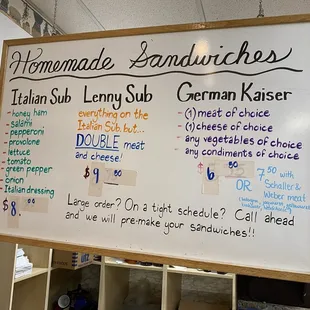 Homemade Sandwiches
Italian Sub
- honey ham
- salami
- pepperoni
- provolone
- lettuce
- tomato
- green pepper
- onion
- Italian dressing
$8.00
Lenny Sub
everything on the
Italian Sub but...
DOUBLE meat
and cheese!
$9
German Kaiser
- (1) meat of choice
- (1) cheese of choice
- any vegetables of choice
- any condiments of choice
$6.50
OR
7.50 with
Schaller &
Weber meat
Large order? On a tight schedule? Call ahead
and we will pre-make your sandwiches!!